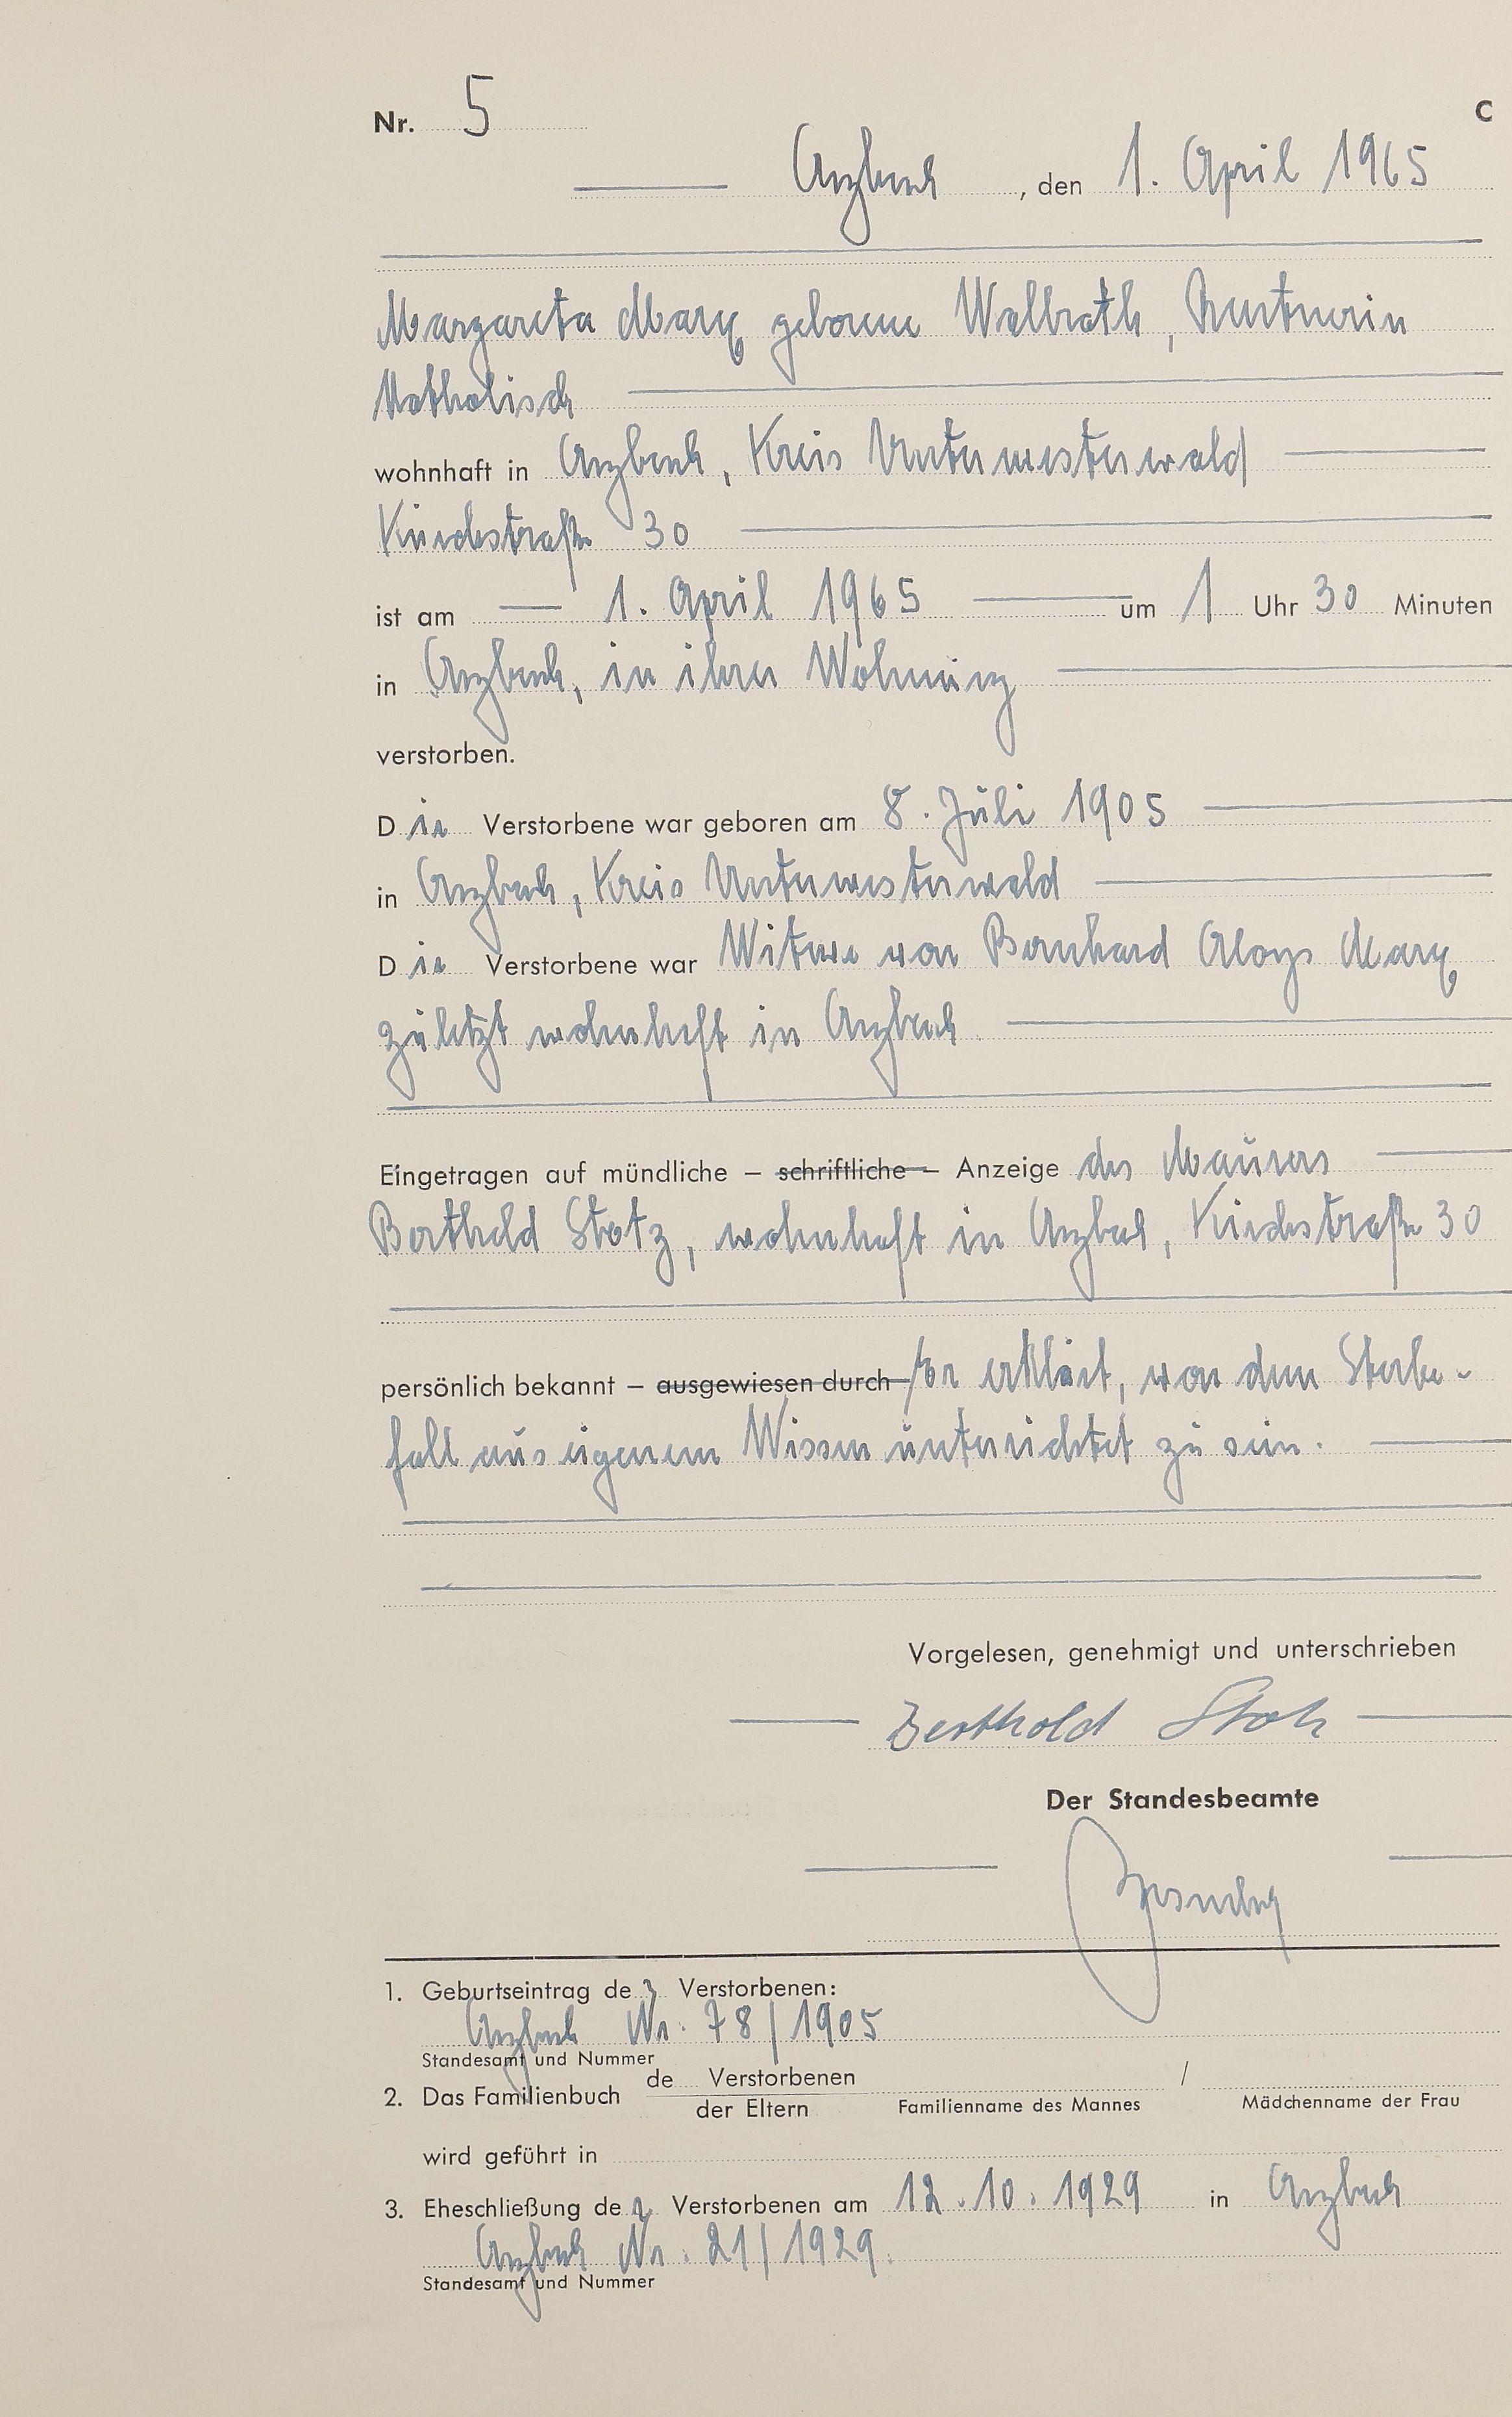 Nr. 5 C
Arzbach, den 1. April 1965
Margareta Marx geborene Wallrath, Rentnerin
Katholisch
wohnhaft in Arzbach, Kreis Unterwesterwald
Kirchstraße 30
ist am 1. April 1965 um 1 Uhr 30 Minuten
in Arzbach, in ihrer Wohnung
verstorben.
Die Verstorbene war geboren am 8. Juli 1905
in Arzbach, Kreis Unterwesterwald
Die Verstorbene war Witwe von Bernhard Aloys Marx
zuletzt wohnhaft in Arzbach
Eingetragen auf mündliche – schriftliche – Anzeige des Maurers
Berthold Stotz, wohnhaft in Arzbach, Kirchstraße 30
persönlich bekannt – ausgewiesen durch Er erklärt, von dem Sterbe-
fall aus eigenem Wissen unterrichtet zu sein.
Vorgelesen, genehmigt und unterschrieben
Berthold Stotz
Der Standesbeamte
1. Geburtseintrag der Verstorbenen:
Arzbach Nr. 78/1905
Standesamt und Nummer
de Verstorbenen /
2. Das Familienbuch
der Eltern Familienname des Mannes Mädchenname der Frau
wird geführt in
3. Eheschließung der Verstorbenen am 12.10.1929 in Arzbach
Arzbach Nr. 21/1929.
Standesamt und Nummer